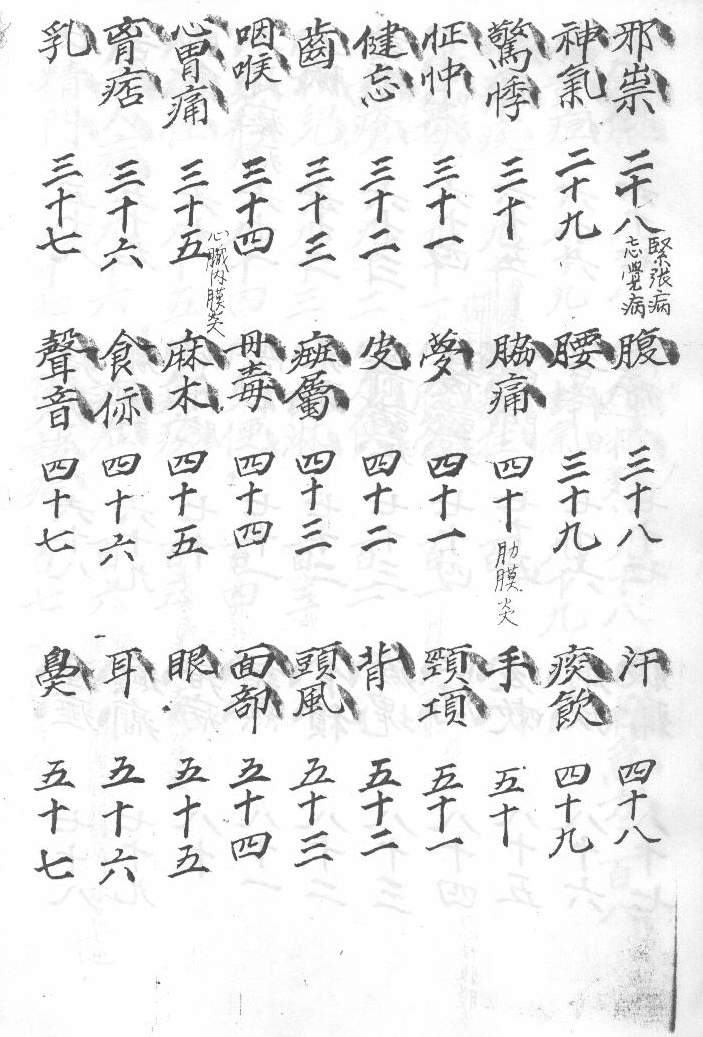 邪祟 二十八
緊張病
忘覺病
神氣 二十九
驚悸 三十
怔忡 三十一
健忘 三十二
齒 三十三
咽喉 三十四
心胃痛 三十五
心臟內膜炎
肓痞 三十六
乳 三十七
腹 三十八
腰 三十九
脇痛 四十
肋膜炎
夢 四十一
皮 四十二
屬 四十三
丹毒 四十四
麻木 四十五
食㑊 四十六
聲音 四十七
汗 四十八
痰飮 四十九
手 五十
頸項 五十一
背 五十二
頭風 五十三
面部 五十四
眼 五十五
耳 五十六
鼻 五十七